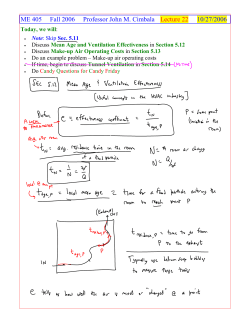 ME 405 Fall 2006 Professor John M. Cimbala Lecture 22 10/27/2006
Today, we will:
• Note: Skip Sec. 5.11
• Discuss Mean Age and Ventilation Effectiveness in Section 5.12
• Discuss Make-up Air Operating Costs in Section 5.13
• Do an example problem – Make-up air operating costs
• If time, begin to discuss Tunnel Ventilation in Section 5.14
• Do Candy Questions for Candy Friday
SEC 5.11 Mean Age & Ventilation Effectiveness
[Useful concepts in the HVAC industry]
Define e = effectiveness coefficient = tN / tage,P
P = some point
(location) in the
room
N = room air change
N = Q/V
tN = avg. residence time in the room
of a fluid particle
tN = 1/N = V/Q
tage,P = local mean age = time for a fluid particle entering the
room to reach point P
(Exhaust)
OUT
P
tage,P
IN
tresidence,P = time to go from
P to the exhaust
e tells us how well the air is mixed or "changed" @ a point